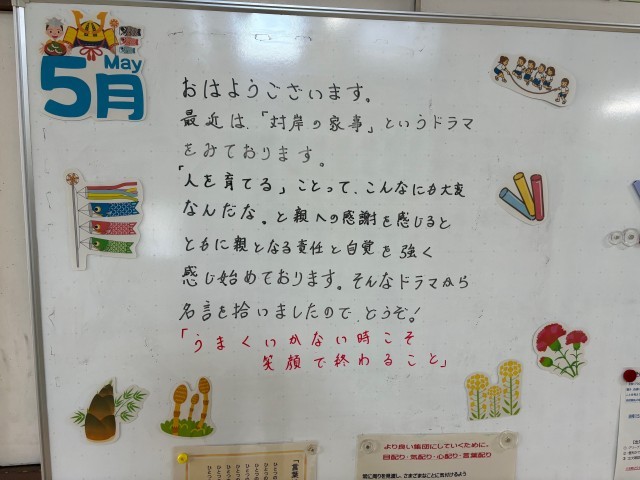 5月
May
おはようございます。
最近は、「対岸の家事」というドラマ
をみております。
「人を育てる」ことって、こんなにも大変
なんだな。と親への感謝を感じると
ともに親となる責任と自覚を強く
感じ始めております。そんなドラマから
名言を拾いましたので、どうぞ!
「うまくいかない時こそ
笑顔で終わること」
より良い集団にしていくために。
目配り・気配り・心配り・言葉配り